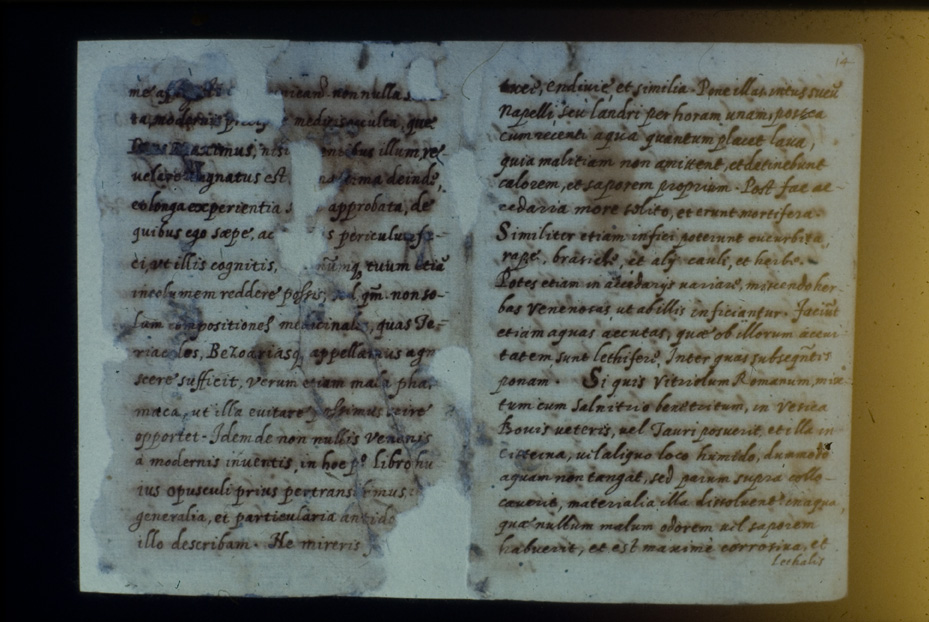 nonnulla
ta, moderni medicis occulta, que
nisi illum re-
velare dignatus est
longa experientia approbata, de
quibus ego sæpe, ac s periculu fe-
ci, vt illis cognitis, tuum etiã
incolumem reddere possis, qm̃ non so-
lum compositiones medicinal, quas Te-
riac los, Bezoariasq appellamus agn
scere sufficit, verum etiam mala pha
maca, ut illa euitare possimus scire
opportet. Idem de non nullis venenis
a modernis inuentis, in hoc pº libro hu
ius opusculi prius pertrans emus
generalia, et particularia antido
illo describam. Ne mireris
14
endiuie, et similia. Pone illa
Napelli seu landri per horam unam, postea
cum recenti aqua quantum placet laua,
quia malitiam non amittent, et detinebunt
calorem, et saporem proprium. Post fac ac-
cedaria more solito, et erunt mortifera.
Similiter etiam infici poterunt cucurbita,
rape, brasice, et alij cauli, et herbe.
Potes etiam in accedarijs uariare, miscendo her
bas venenosas ut ab illis inficiantur. Faciũt
etiam aquas accutas, quæ ob illorum accui
tatem sunt lethifere, Inter quas subseqñtes
ponam. Si quis Vitriolum Romanum, mix-
tum cum Salnitrio bene tritum, in Vesica
Bouis veteris, uel Tauri posuerit, et illa in
cisterna, uel aliquo loco humido, dummodo
aquam non tangat, sed parum supra collo-
cauerit, materialia illa dissoluent in aqua,
quæ nullum malum odorem uel saporem
habuerit, et est maxime corrosiua, et
Lethalis